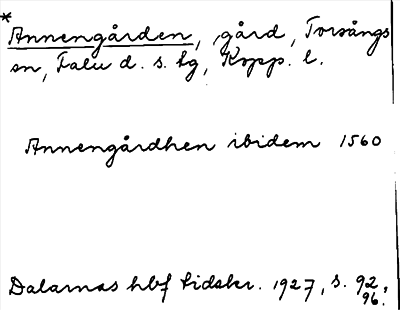 * Annengården, gård, Torsångs
sn, Falu d. s. tg, Kopp. l.
Annengårdhen ibidem 1560
Dalarnas hbf tidskr. 1927, s. 92,
96.